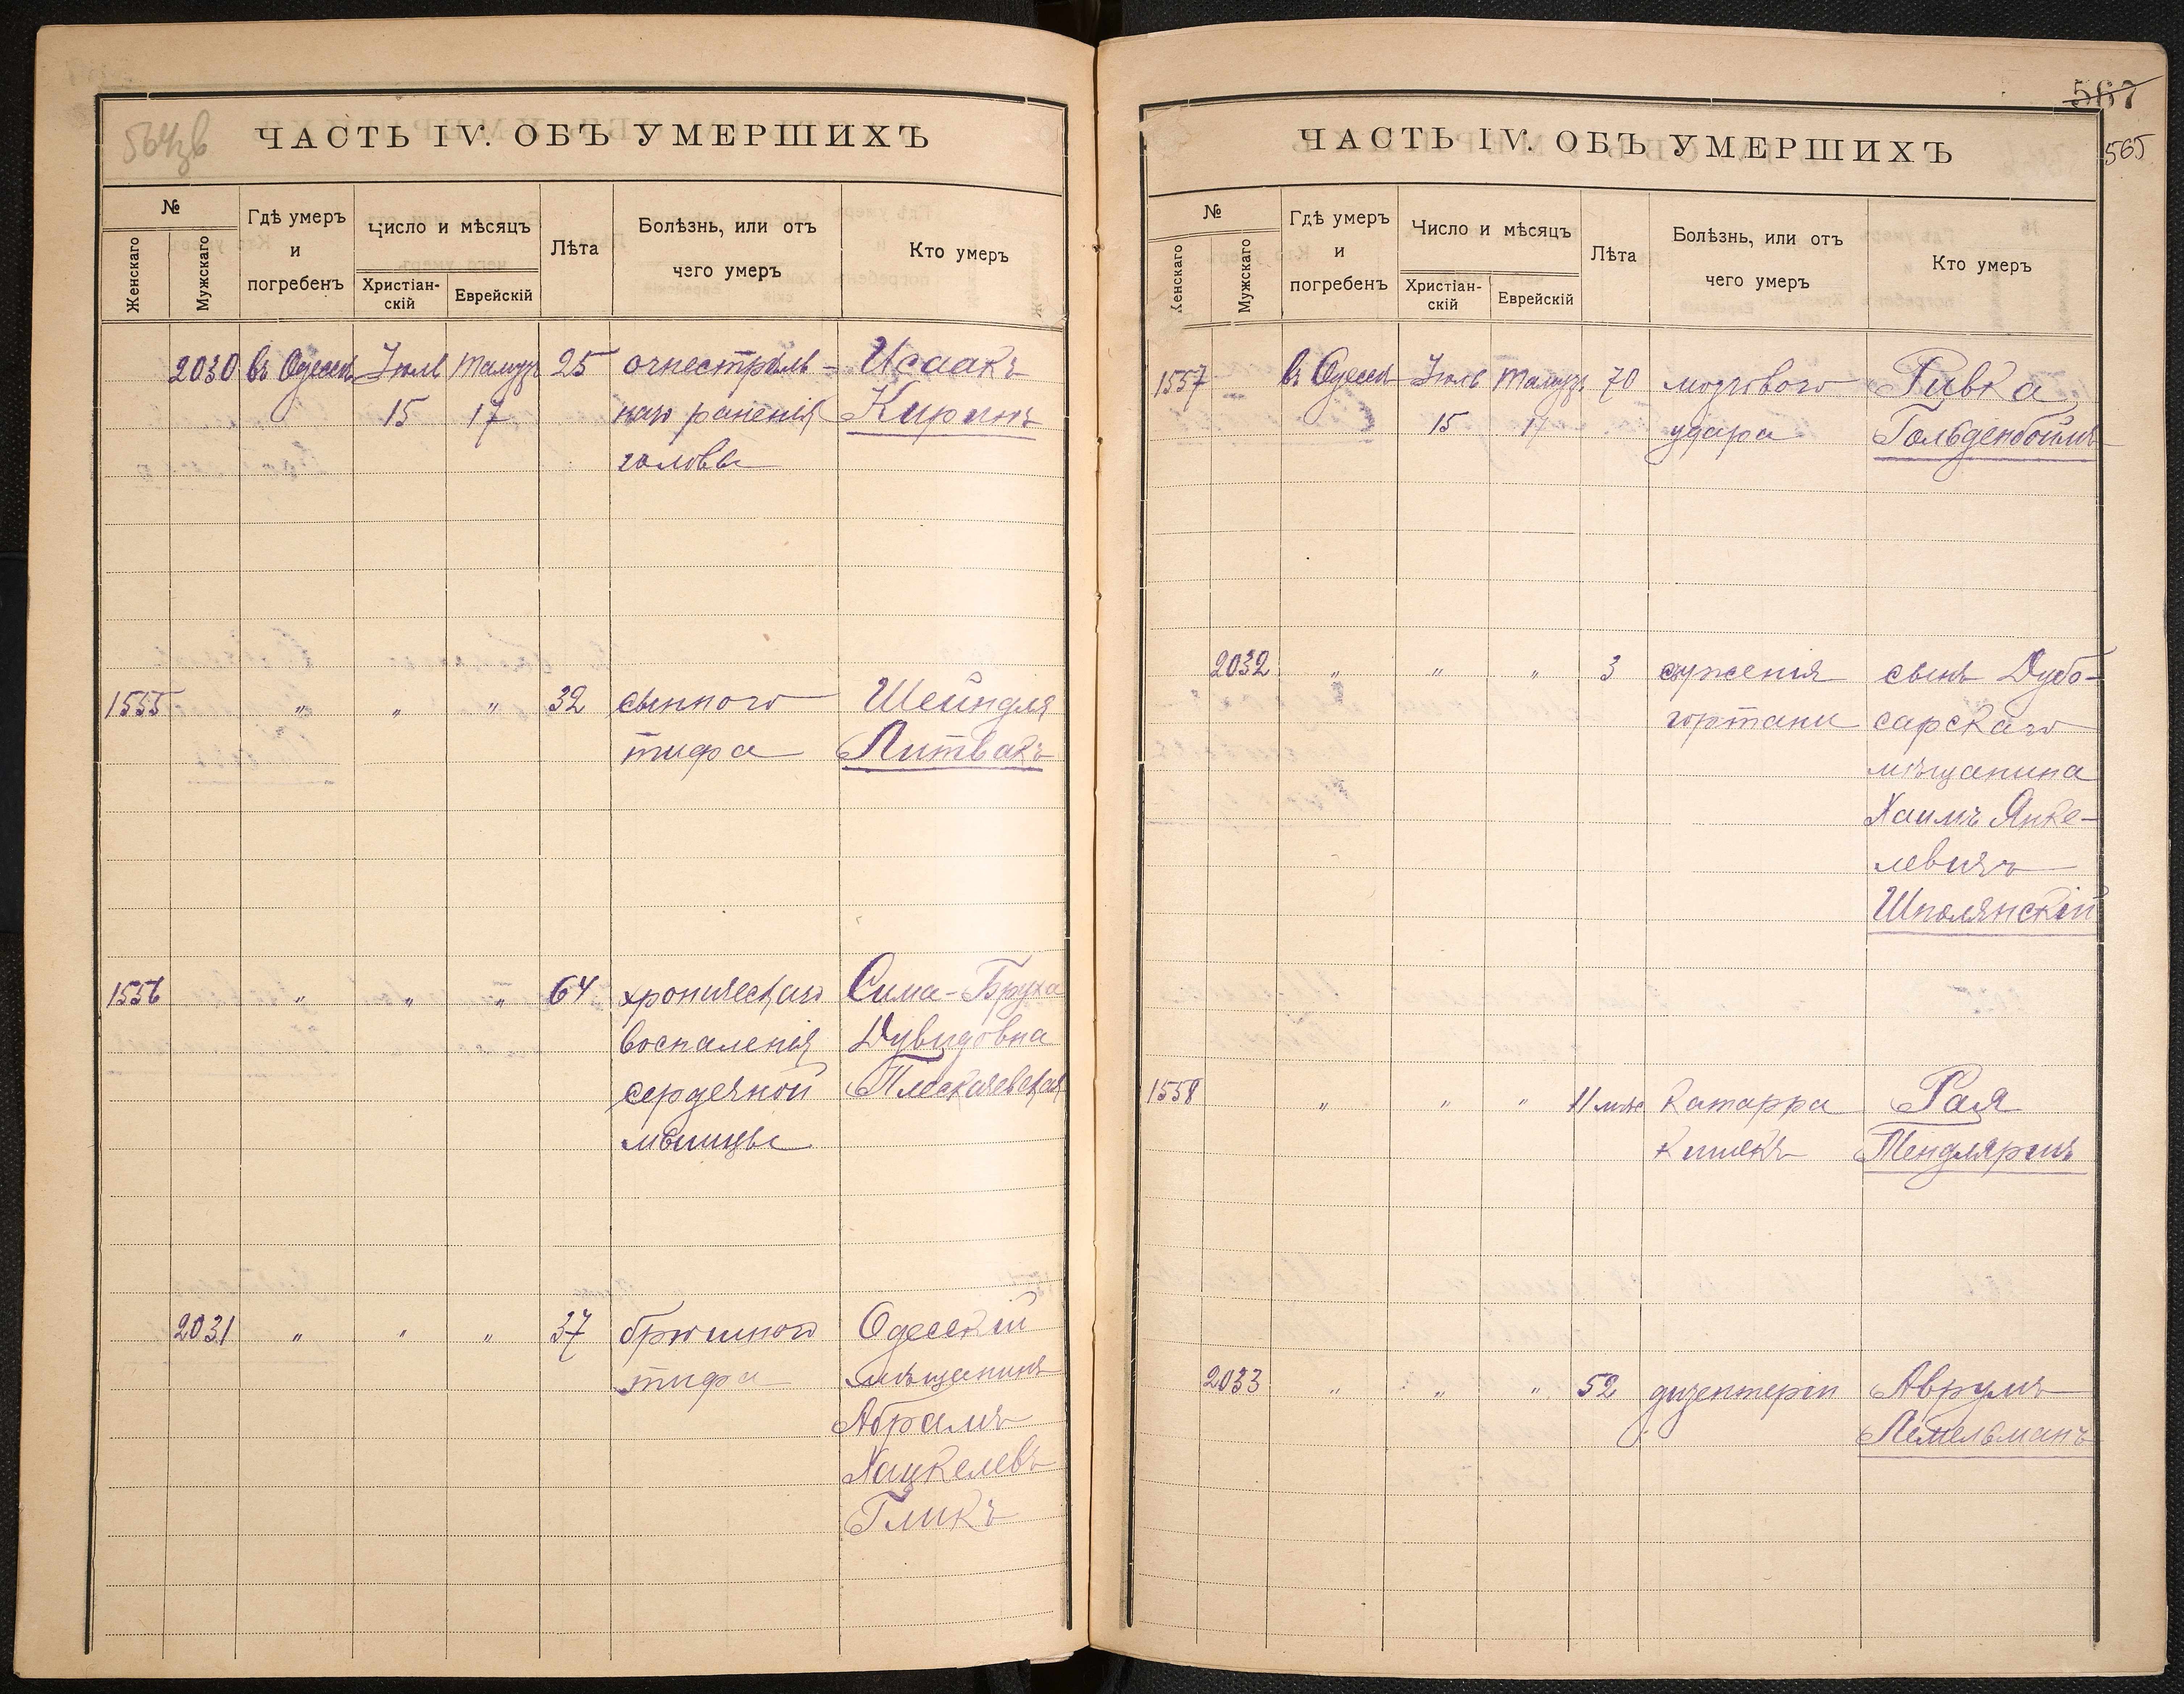 ЧАСТЬ IV. ОБЪ УМЕРШИХЪ
№
Женскаго
Мужскаго
Гдѣ умеръ
и
погребенъ
Число и мѣсяцъ
Христіан-
скій
Еврейскій
Лѣта
Болѣзнь, или отъ
чего умеръ
Кто умеръ
2030 въ Одессѣ Іюль Тамузъ 25 огнестрѣль- Исаакъ
15 17 наго раненія Киринъ
головы
1555 " " " 32 сыпного Шейндля
тифа Литвакъ
1556 " " " 64 хроническаго Сима-Бруха
воспаленія Дувидовна
сердечной Плескачевская
мышцы
2031 " " " 37 брюшного Одесскій
тифа мѣщанинъ
Абрамъ
Хацкелевъ
Гликъ
567
565
ЧАСТЬ IV. ОБЪ УМЕРШИХЪ
№
Женскаго
Мужскаго
Гдѣ умеръ
и
погребенъ
Число и мѣсяцъ
Христіан-
скій
Еврейскій
Лѣта
Болѣзнь, или отъ
чего умеръ
Кто умеръ
1557 въ Одессѣ Іюль Тамузъ 70 мозгового Ривка
15 17 удара Гольденбоймъ
2032 " " " 3 суженія сынъ Дубо-
гортани сарскаго
мѣщанина
Хаимъ Янке-
левичъ
Шполянскій
1558 " " " 11 мѣс Катарра Рая
кишекъ Тендлярихъ
2033 " " " 52 дизентеріи Аврумъ
Лемельманъ